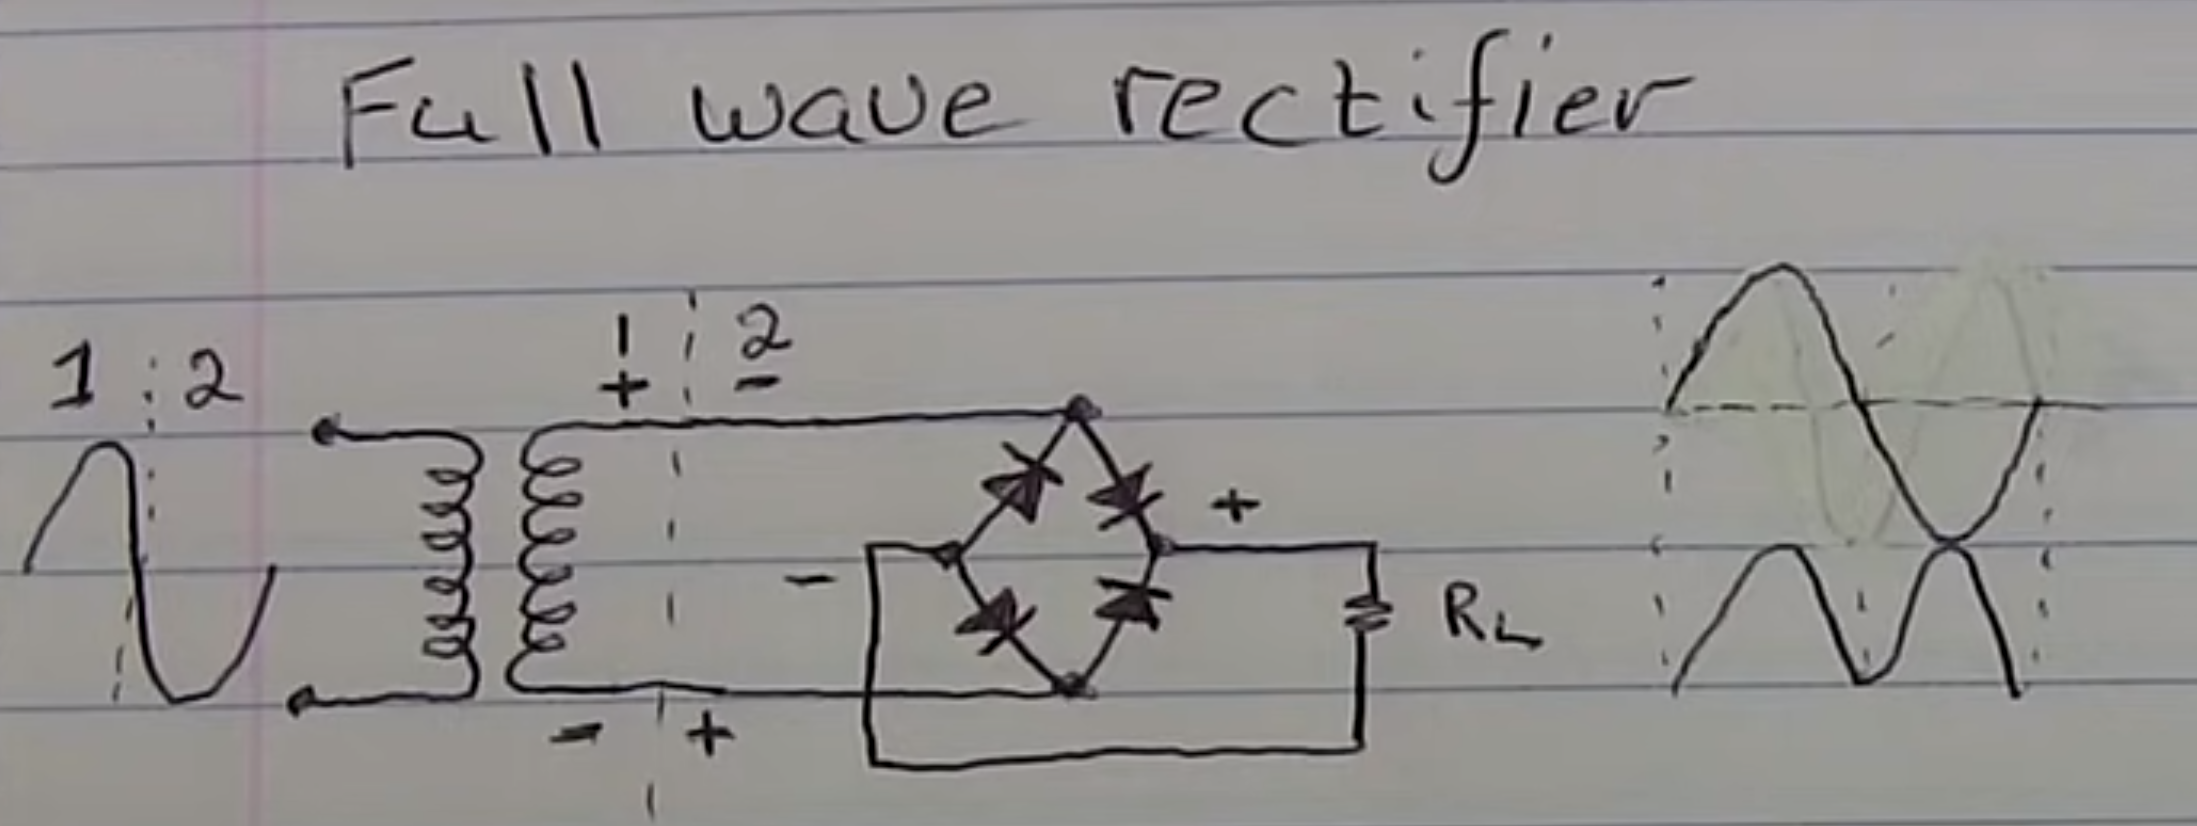 Full wave rectifier
1 2
1 2
+ -
+
-
RL
- +